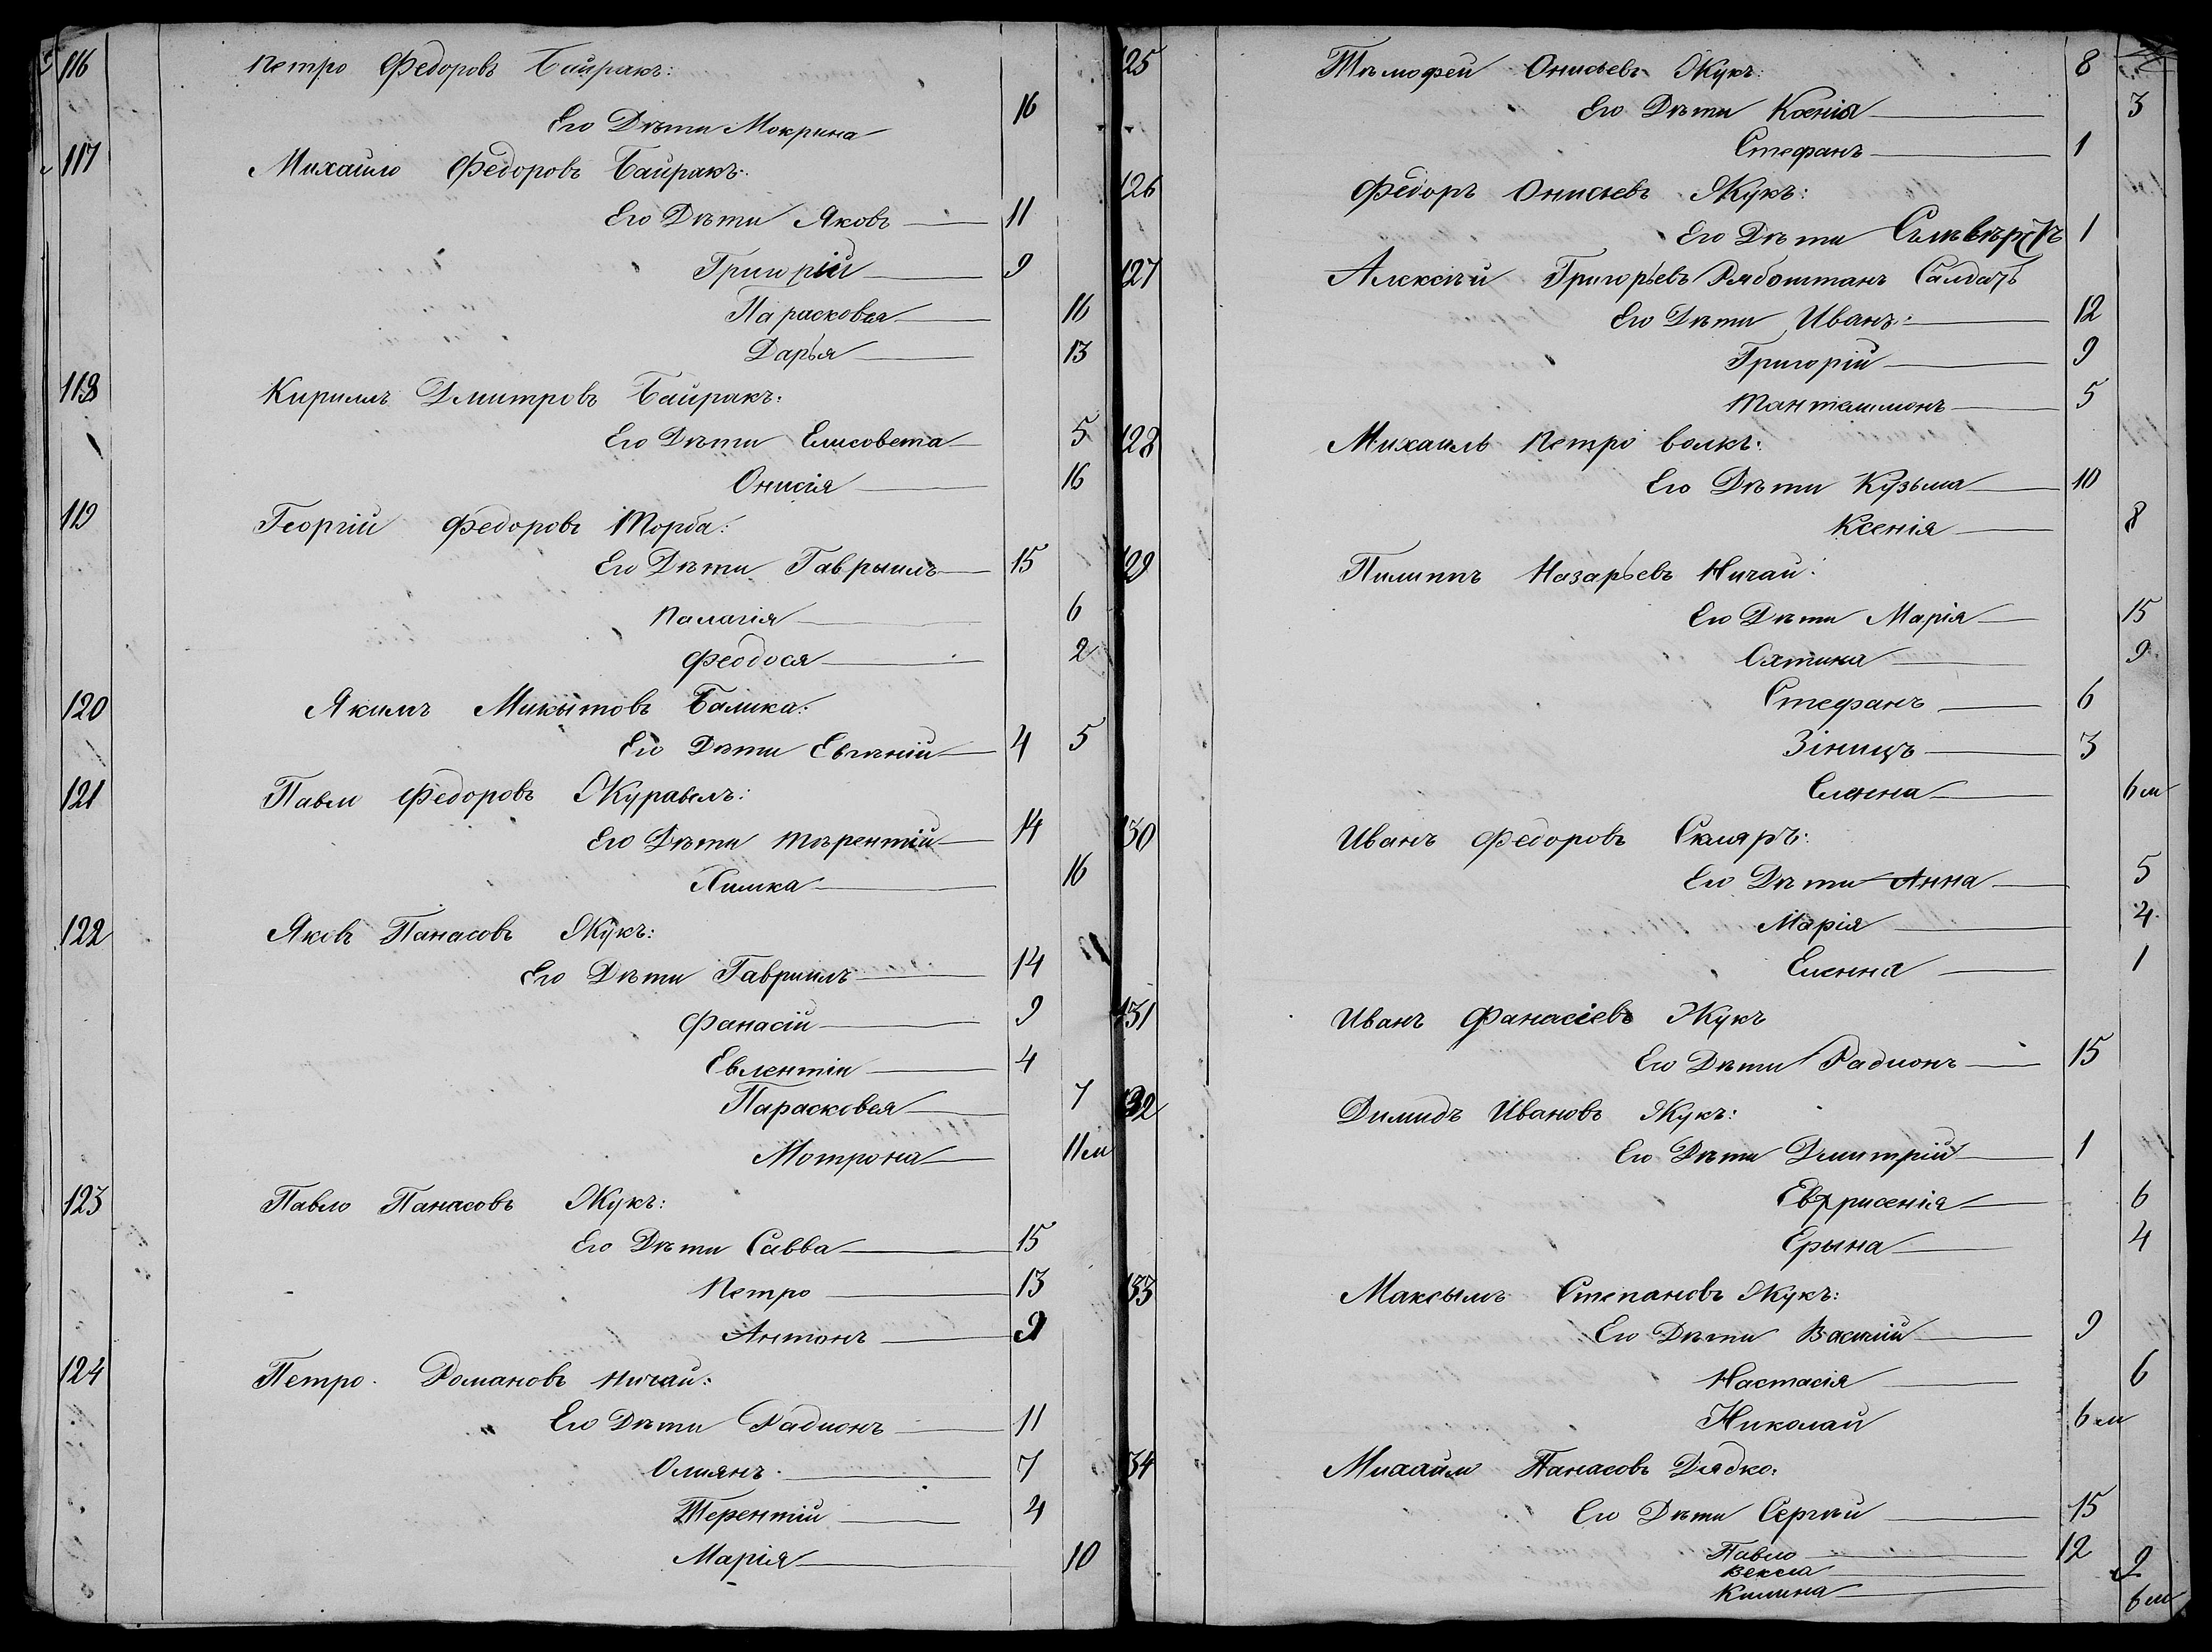 116 Петро Федоровъ Байракъ:
Его Дѣти Мокрина 16
117 Михаило Федоровъ Байракъ:
Его Дѣти Яковъ 11
Григорій 9
Парасковея 16
Дарья 13
118 Кирилъ Дмитровъ Байракъ:
Его Дѣти Елисовета 5
Онисія 16
119 Георгій Федоровъ Торба:
Его Дѣти Гаврыилъ 15
Палагія 6
Феодося 2
120 Якимъ Микытовъ Балика:
Его Дѣти Евгѣній 4 5
121 Павло Федоровъ Журавлъ:
Его Дѣти Търентій 14
Химка 16
122 Яковъ Панасовъ Жукъ:
Его Дѣти Гавриилъ 14
Фанасій 9
Евлентій 4
Парасковея 7
Мотрона 11 м
123 Павло Панасовъ Жукъ:
Его Дѣти Савва 15
Петро 13
Антонъ 9
124 Петро Романовъ Ничай:
Его Дѣти Радионъ 11
Олиянъ 7
Терентій 4
Марія 10
125 Тъмофей Онисьевъ Жукъ: 8
Его Дѣти Ксенія 3
Стефанъ 1
126 Федоръ Онисьевъ Жукъ:
Его Дѣти 1
127 Алексѣй Григорьевъ Рябоштанъ Салдатъ
Его Дѣти Иванъ: 12
Григорій 9
Пантелимонъ 5
128 Михаилъ Петро волкъ:
Его Дѣти Кузьма 10
Ксенія 8
129 Пилипъ Назарьевъ Ничай:
Его Дѣти Марія 15
Охтина 9
Стефанъ 6
Зіницъ 3
Еленна 6 м
130 Иванъ Федоровъ Скляръ:
Его Дѣти Анна 5
Марія 4
Еленна 1
131 Иванъ Фанасіевъ Жукъ
Его Дѣти Радионъ 15
132 Димидъ Ивановъ Жукъ:
Его Дѣти Дмитрій 1
Евфрисенія 6
Ерына 4
133 Максымъ Степановъ Жукъ:
Его Дѣти Василій 9
Настасія 6
Николай 6 м
134 Панасовъ Дядко:
Его Дѣти Сергѣй 15
Павло 12
Векла 9
Килина 6 м